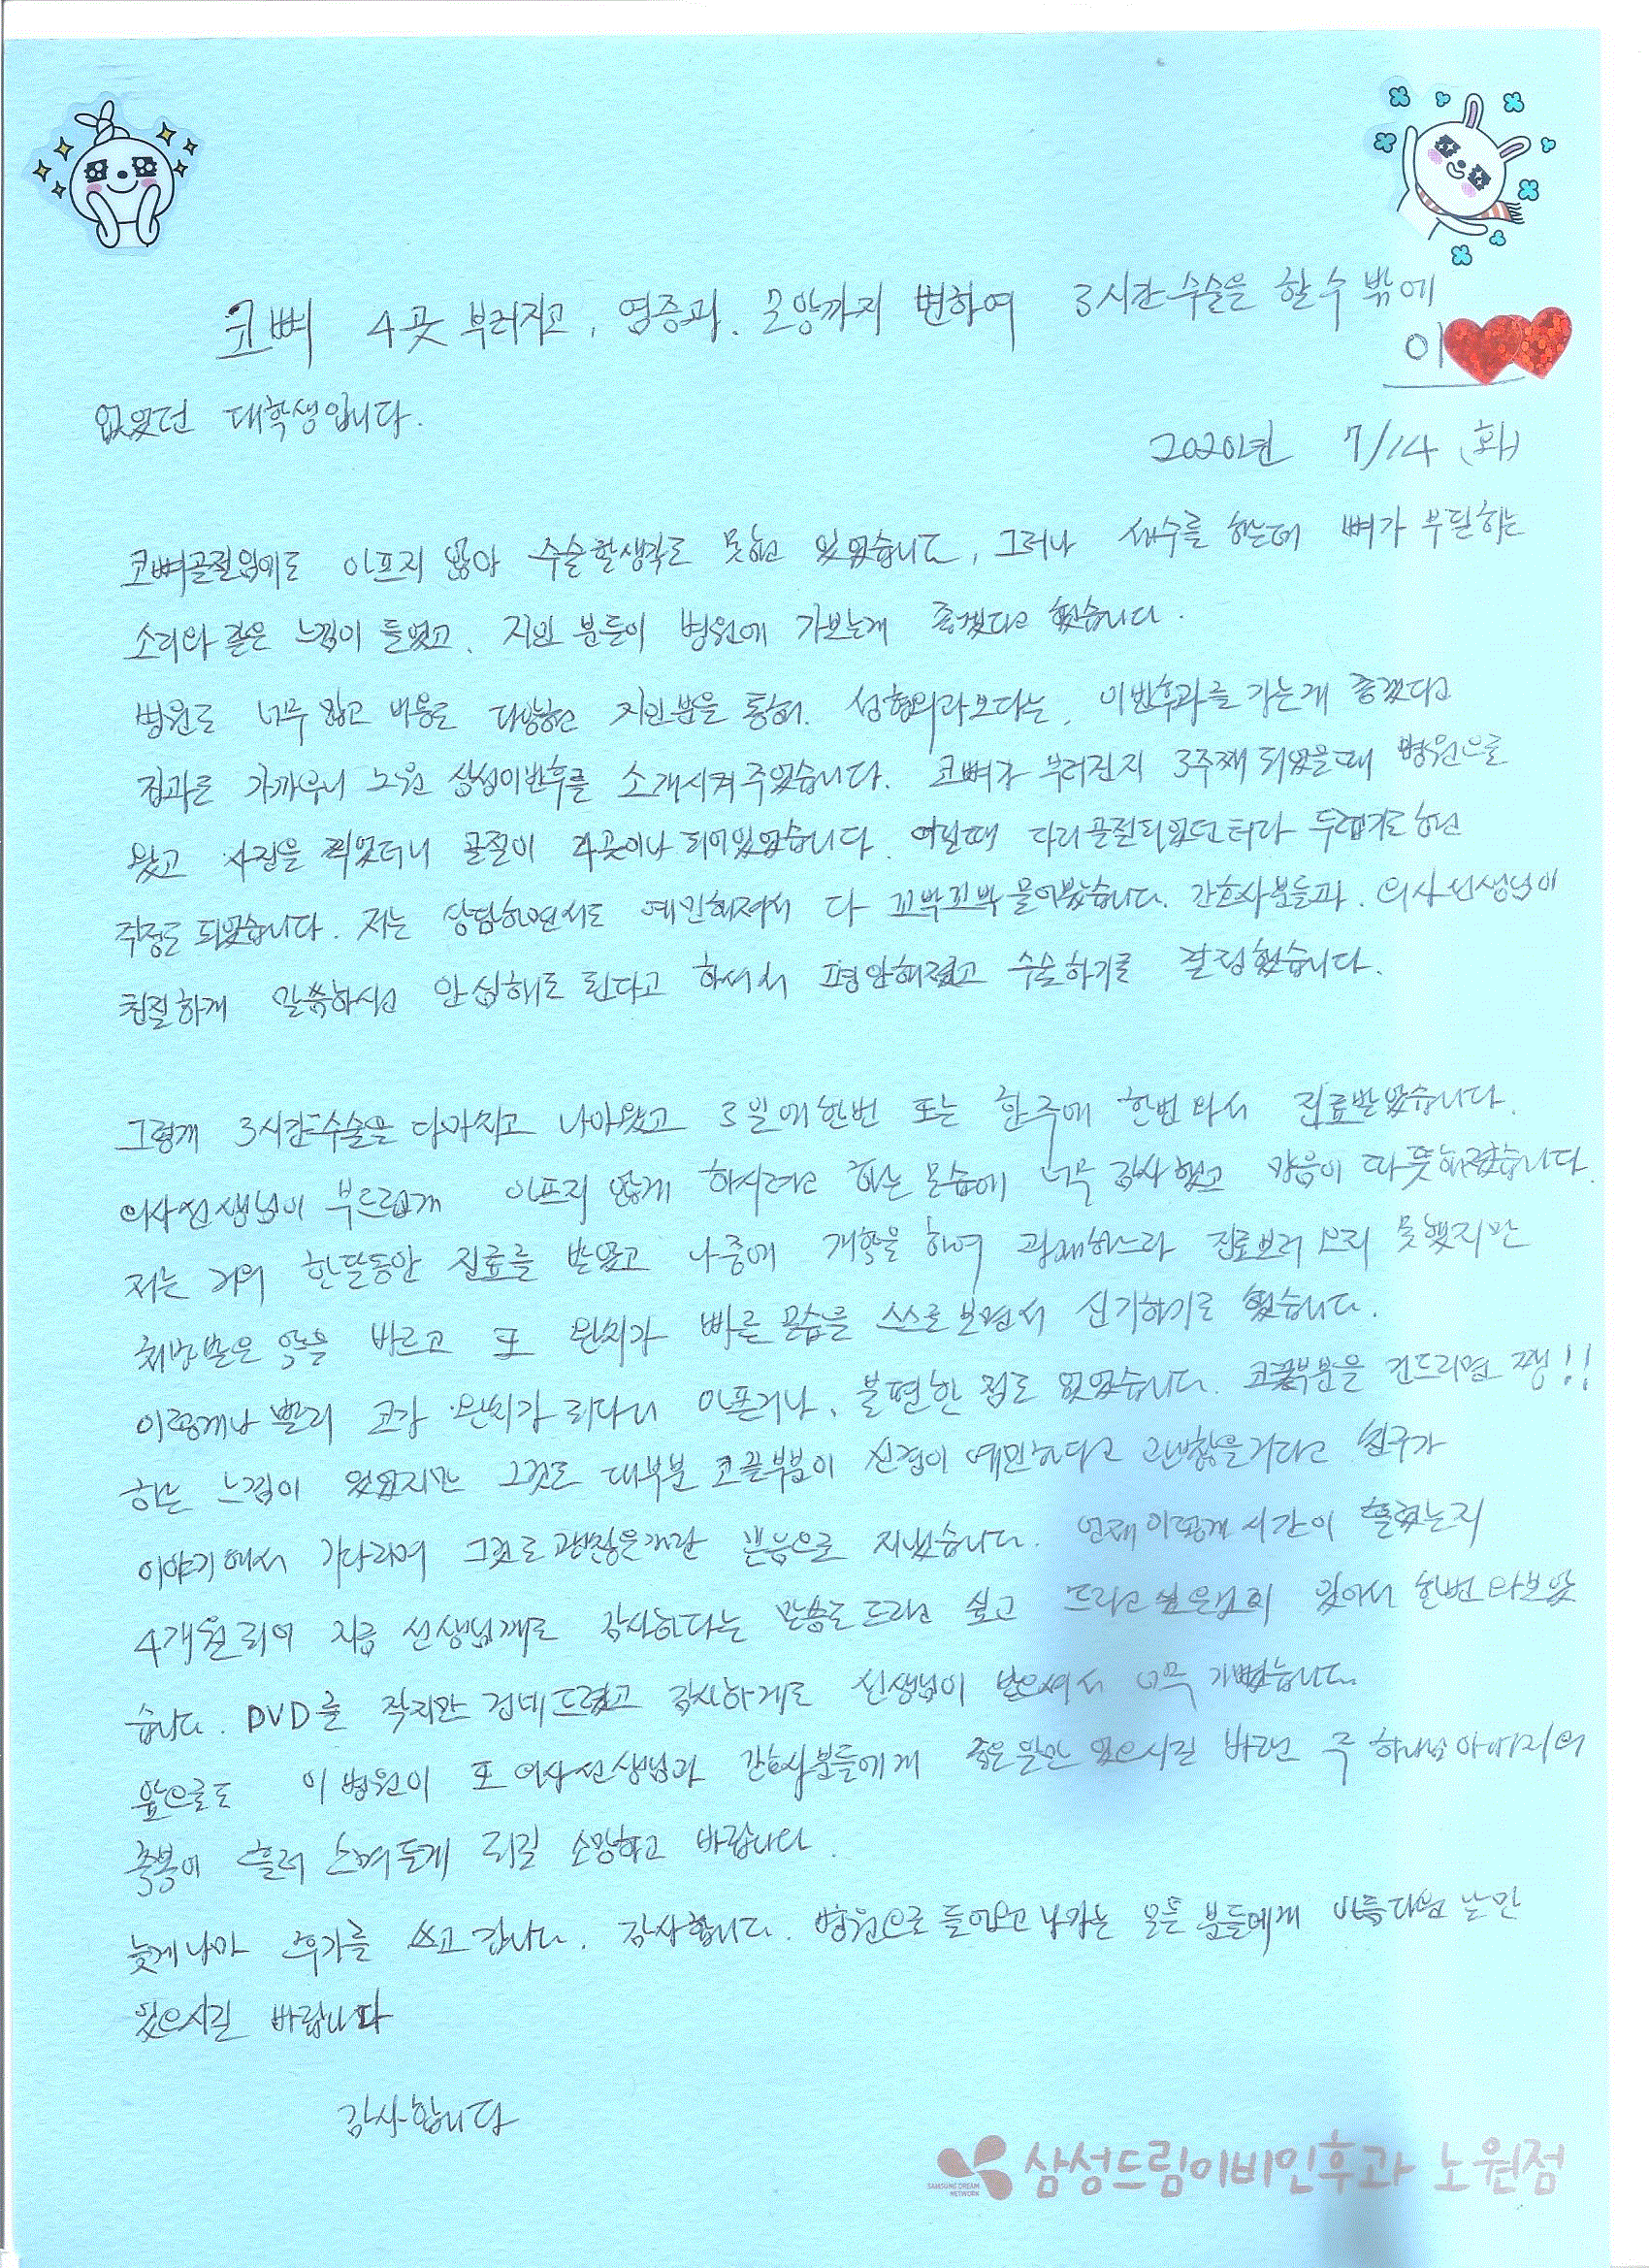 코뼈 4곳 부러지고, 염증과, 모양까지 변하여 3시간수술을 할수 밖에
이
없었던 대학생입니다.
2020년 7/14 (화)
코뼈골절임에도 아프지 않아 수술할생각도 못하고 있었습니다, 그러나 세수를 하는데 뼈가 부딪히는
소리와 같은 느낌이 들었고, 지인 분들이 병원에 가보는게 좋겠다고 했습니다.
병원도 너무 많고 비용도 다양하고 지인분을 통해, 성형외과보다는, 이비인후과를 가는게 좋겠다고
집과도 가까우니 노원 삼성이비인후를 소개시켜주었습니다. 코뼈가 부러진지 3주째 되었을때 병원으로
왔고 사진을 찍었더니 골절이 4곳이나 되어있었습니다. 어릴때 다리골절되었던터라 두렵기도하고
걱정도 되었습니다. 저는 상담하면서도 예민해져서 다 꼬박꼬박 물어봤습니다. 간호사분들과, 의사선생님이
친절하게 말씀하시고 안심해도 된다고 하셔서 평안해졌고 수술하기로 결정했습니다.
그렇게 3시간수술을 다마치고 나아왔고 3일에한번 또는 한주에 한번 와서 진료받았습니다.
의사선생님이 부드럽게 아프지 않게 하시려고 하는 모습에 너무 감사했고 마음이 따뜻해졌습니다.
저는 거의 한달동안 진료를 받았고 나중에 개학을 하여 과제하느라 진료보러 오지 못했지만
처방받은 약을 바르고 또 완치가 빠른 모습을 스스로 보면서 신기하기도 했습니다.
이렇게나 빨리 코가 완치가 되다니 아픈거나, 불편한 점도 없었습니다. 코끝부분을 건드리면 찡!!
하는 느낌이 있었지만 그것도 대부분 코끝부분이 신경이 예민하다고 괜찮을거라고 친구가
이야기해서 기다리며 그것도괜찮은거란 믿음으로 지냈습니다. 언제 어떻게 시간이 흘렀는지
4개월되어 지금 선생님께도 감사하다는 말씀도드리고 싶고 드리고싶은것이 있어서 한번 와보았
습니다. DVD를 작지만 건네드렸고 감사하게도 선생님이 받으셔서 너무 기뻤습니다.
앞으로도 이 병원이 또 의사선생님과 간호사분들에게 좋은일만 있으시길 바라고 주 하나님아버지의
축복이 흘러 스며들게 되길 소망하고 바랍니다.
늦게나마 후기를 쓰고갑니다. 감사합니다. 병원으로 들어오고 나가는 모든 분들에게 아름다운 날만
있으시길 바랍니다
감사합니다
SAMSUNG DREAM NETWORK 삼성드림이비인후과 노원점